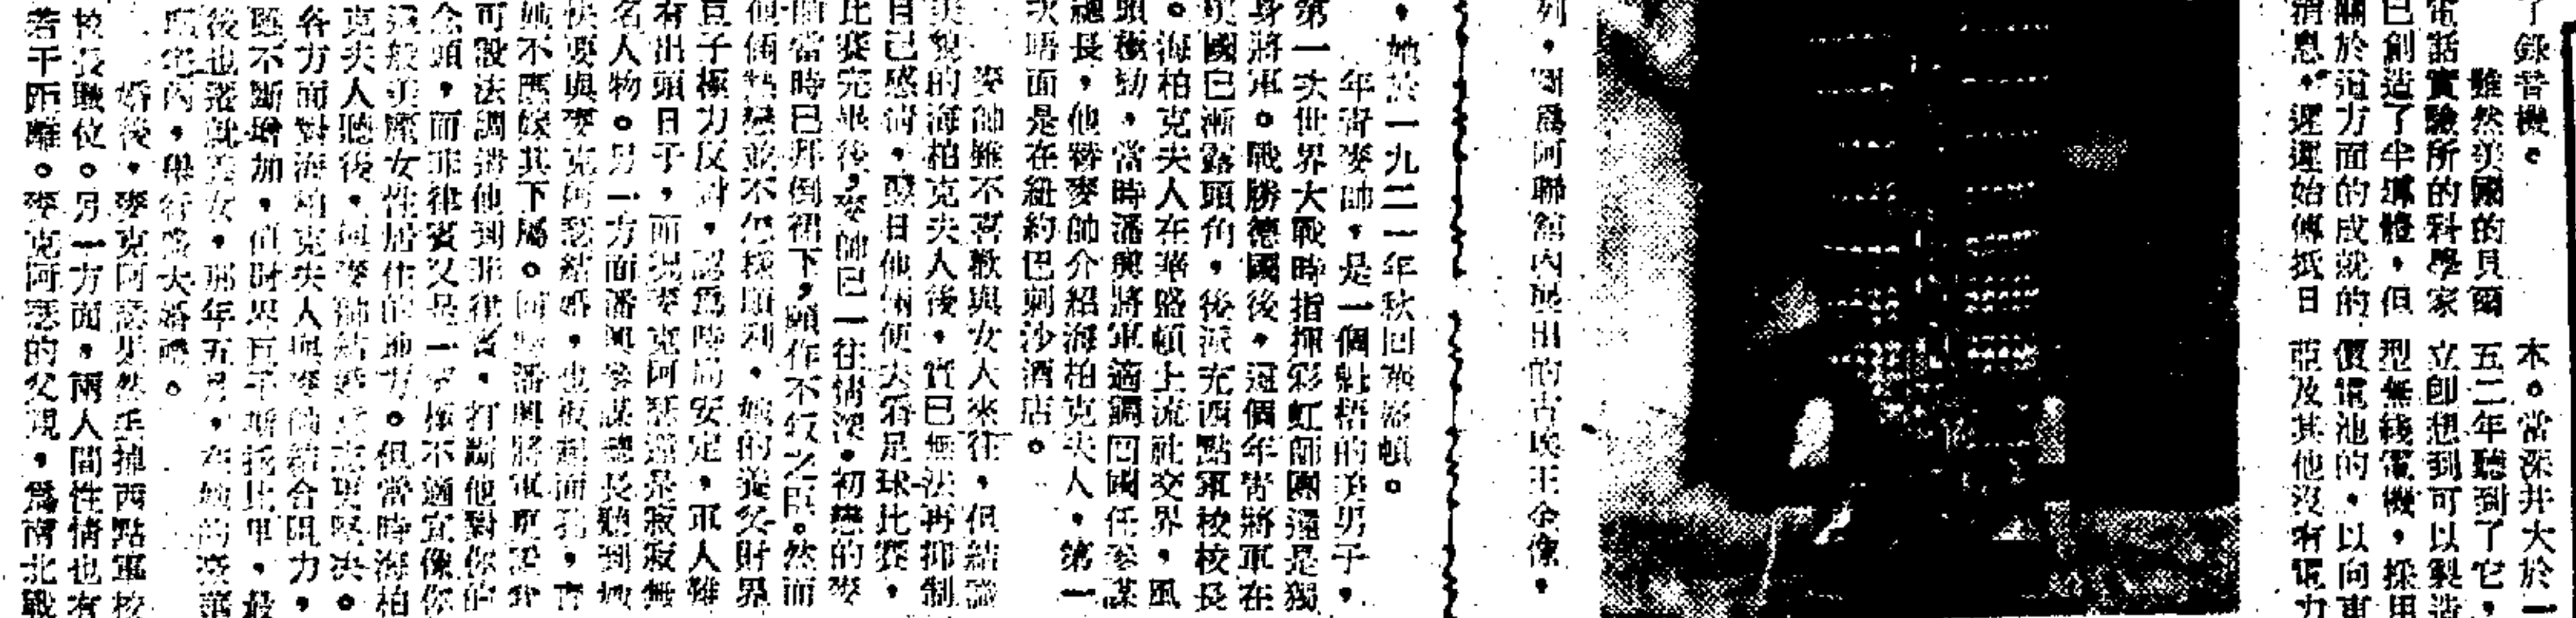 了錄音機。
雖然美國的貝爾
電話實驗所的科學家
已創造了半導體，但
關於這方面的成就的
消息，遲遲始傳抵日
本。當深井大於一
五二年聽到了它，
立卽想到可以製造
型無綫電機，採用
價電池的，以向東
亞及其他沒有電力
列，圖爲阿聯館內展出的古埃王金像，
，她於一九二一年秋回華盛頓。
年靑麥帥，是一個魁梧的美男子，
第一次世界大戰時指揮彩虹師團還是獨
身將軍。戰勝德國後，這個年靑將軍在
美國已漸露頭角，後派充西點軍校校長
。海柏克夫人在華盛頓上流社交界，風
頭極勁，當時潘興將軍適調回國任參謀
總長，他替麥帥介紹海柏克夫人，第一
次晤面是在紐約巴剌沙酒店。
麥帥雖不喜歡與女人來往，但結識
美貌的海柏克夫人後，實已無法再抑制
自已感情，翌日他倆便去看足球比賽，
比賽完畢後，麥帥已一往情深，初戀的麥
帥當時已拜倒裙下，願作不叛之臣。然而
他倆熱戀並不怎樣順利，她的養父財界
巨子極力反對，認爲時局安定，軍人難
有出頭日子，而視麥克阿瑟還是寂寂無
名人物。另一方面潘興參謀總長聽到她
快要與麥克阿瑟結婚，也板起面孔，言
她不應嫁其下屬。同時潘興將軍更電
可設法調派他到菲律賓，打斷他對你的
念頭，而菲律賓又是一個極不適宜像你
這般美麗女性居住的地方。但當時海柏
克夫人聽後，與麥帥結婚意志更堅决。
各方面對海柏克夫人與麥帥結合阻力，
雖不斷增加，但財界巨子斯托比里，最
後也遷就養女，那年五月，在她的豪華
底宅內，舉行盛大婚禮。
婚後，麥克阿瑟果然丢掉西點軍校
校長職位。另一方面，兩人間性情也有
若干距離。麥克阿瑟的父親，爲南北戰